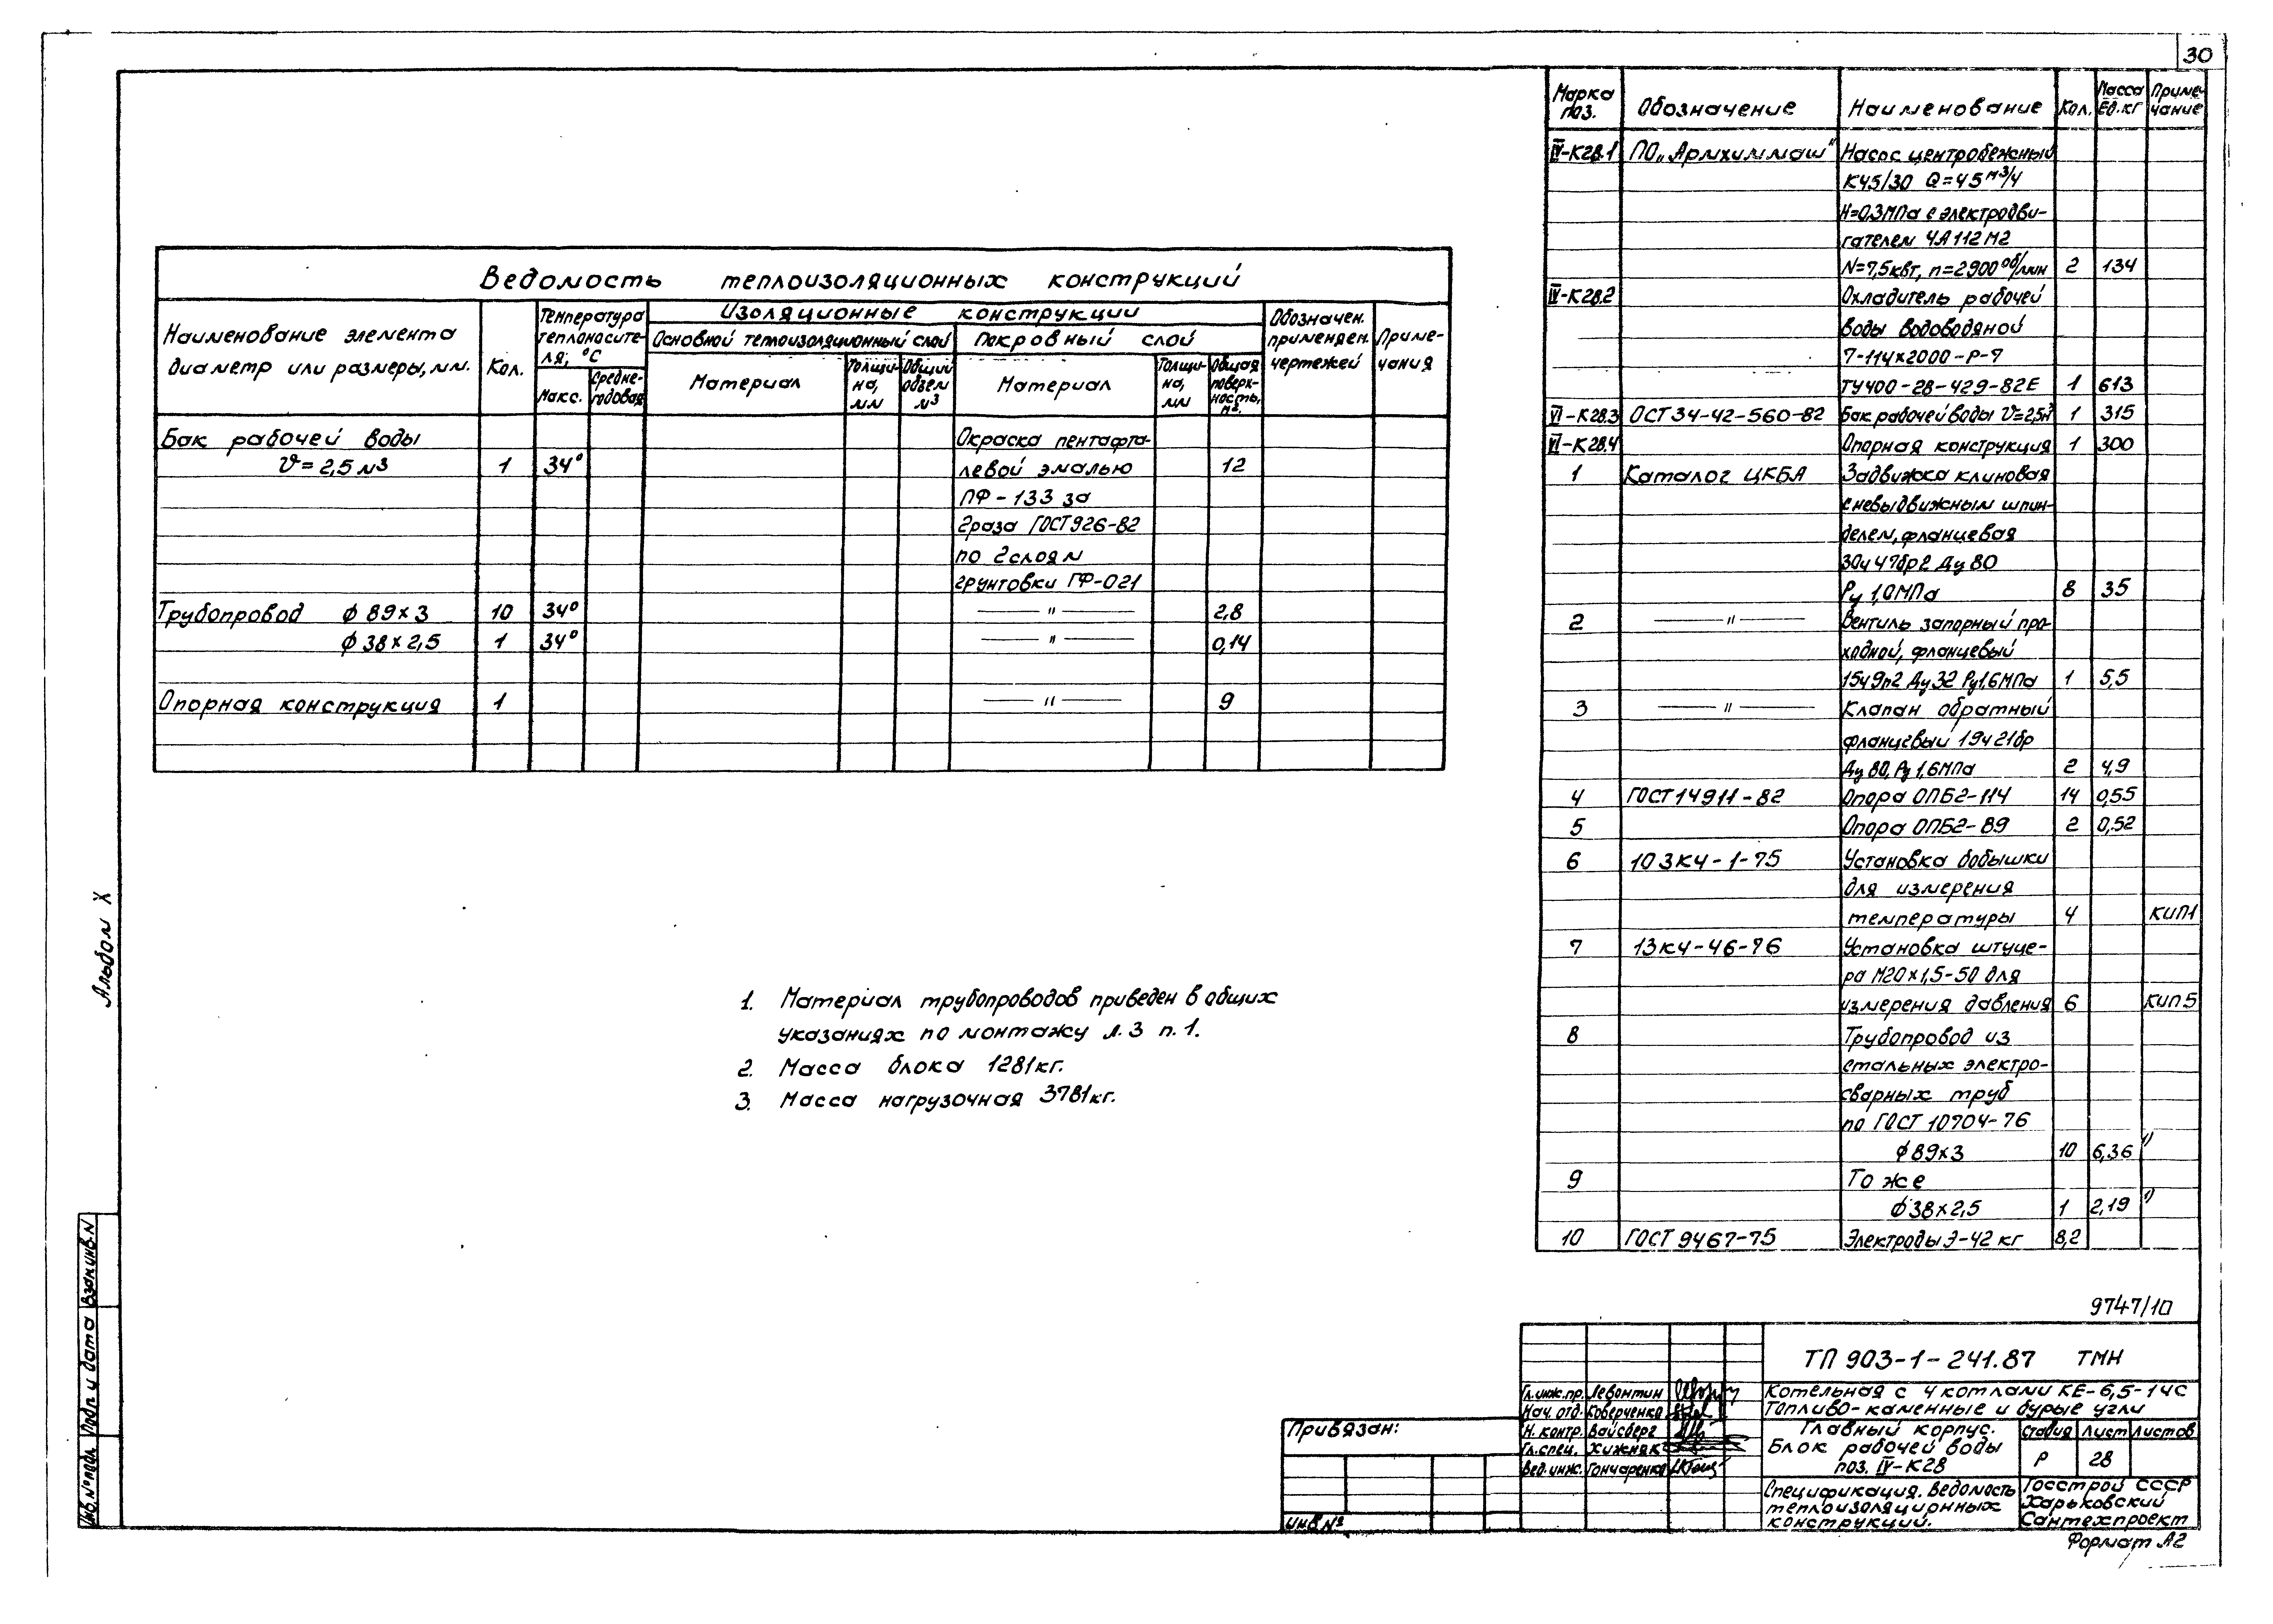 30
Ведомость теплоизоляционных конструкций
Наименование элемента диаметр или размеры, мм.
Кол.
Температура теплоносителя, °С
Макс.
Средне-годовая
Изоляционные конструкции
Основной теплоизоляционный слой
Покровный слой
Материал
Толщи-на, мм
Общий объем м3
Материал
Толщи-на, мм
Общая поверх-ность, м².
Обозначен. применен. чертежей
Приме-чания
Бак рабочей воды Окраска пентафта-
V = 2,5 м3 1 34° левой эмалью 12
ПФ-133 за
2 раза ГОСТ 926-82
по 2 слоям
грунтовки ГФ-021
Трубопровод ф 89×3 10 34° — " — 2,8
ф 38×2,5 1 34° — " — 0,14
Опорная конструкция 1 — " — 9
1. Материал трубопроводов приведен в общих
указаниях по монтажу л. 3 п. 1.
2. Масса блока 1281кг.
3. Масса нагрузочная 3781кг.
Марка поз.
Обозначение
Наименование
Кол.
Масса Ед. кг
Приме-чание
IV-К28.1 ПО „Армхиммаш" Насос центробежный
К45/30 Q=45 м3/ч
Н=0,3МПа с электродви-
гателем 4А112М2
N=7,5квт, n=2900 об/мин 2 134
IV-К28.2 Охладитель рабочей
воды водоводяной
7-114×2000-Р-7
ТУ400-28-429-82Е 1 613
VI-К28.3 ОСТ 34-42-560-82 Бак рабочей воды V=2,5м3 1 315
VI-К28.4 Опорная конструкция 1 300
1 Каталог ЦКБА Задвижка клиновая
с невыдвижным шпин-
делем, фланцевая
30ч47бр2 Ду 80
Ру 1,0МПа 8 35
2 — " — Вентиль запорный про-
ходной, фланцевый
15ч9п2 Ду32 Ру1,6МПа 1 5,5
3 — " — Клапан обратный
фланцевый 19ч21бр
Ду 80, Ру 1,6МПа 2 4,9
4 ГОСТ 14911-82 Опора ОПБ2-114 14 0,55
5 Опора ОПБ2-89 2 0,52
6 103К4-1-75 Установка бобышки
для измерения
температуры 4 КИП1
7 13К4-46-76 Установка штуце-
ра М20×1,5-50 для
измерения давления 6 КИП5
8 Трубопровод из
стальных электро-
сварных труб
по ГОСТ 10704-76
ф 89×3 10 6,36 1)
9 То же
ф 38×2,5 1 2,19 1)
10 ГОСТ 9467-75 Электроды Э-42 кг 8,2
Альбом X
Взам инв. N
Подп и дата
Инв. №подл
9747/10
ТП 903-1-241.87 ТМН
Гл. инж. пр. Левонтин
Нач. отд. Коверченко
Н. контр. Вайсберг
Гл. спец. Хижняк
Вед. инж. Гончаренко
Котельная с 4 котлами КЕ-6,5-14С
Топливо-каменные и бурые угли
Главный корпус.
Блок рабочей воды
поз. IV-К28
Стадия Лист Листов
Р 28
Спецификация. Ведомость
теплоизоляционных
конструкций.
Госстрой СССР
Харьковский
Сантехпроект
Привязан:
Инв №
Формат А2